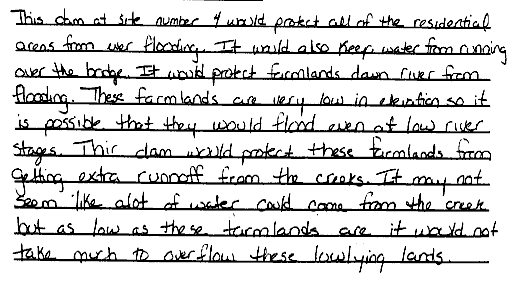 This dam at site number 4 would protect all of the residential
areas from over flooding. It would also keep water from running
over the bridge. It would protect farmlands down river from
flooding. These farmlands are very low in elevation so it
is possible that they would flood even at low river
stages. This dam would protect these farmlands from
getting extra runoff from the creeks. It may not
seem like alot of water could come from the creek
but as low as these farmlands are it would not
take much to overflow these lowlying lands.